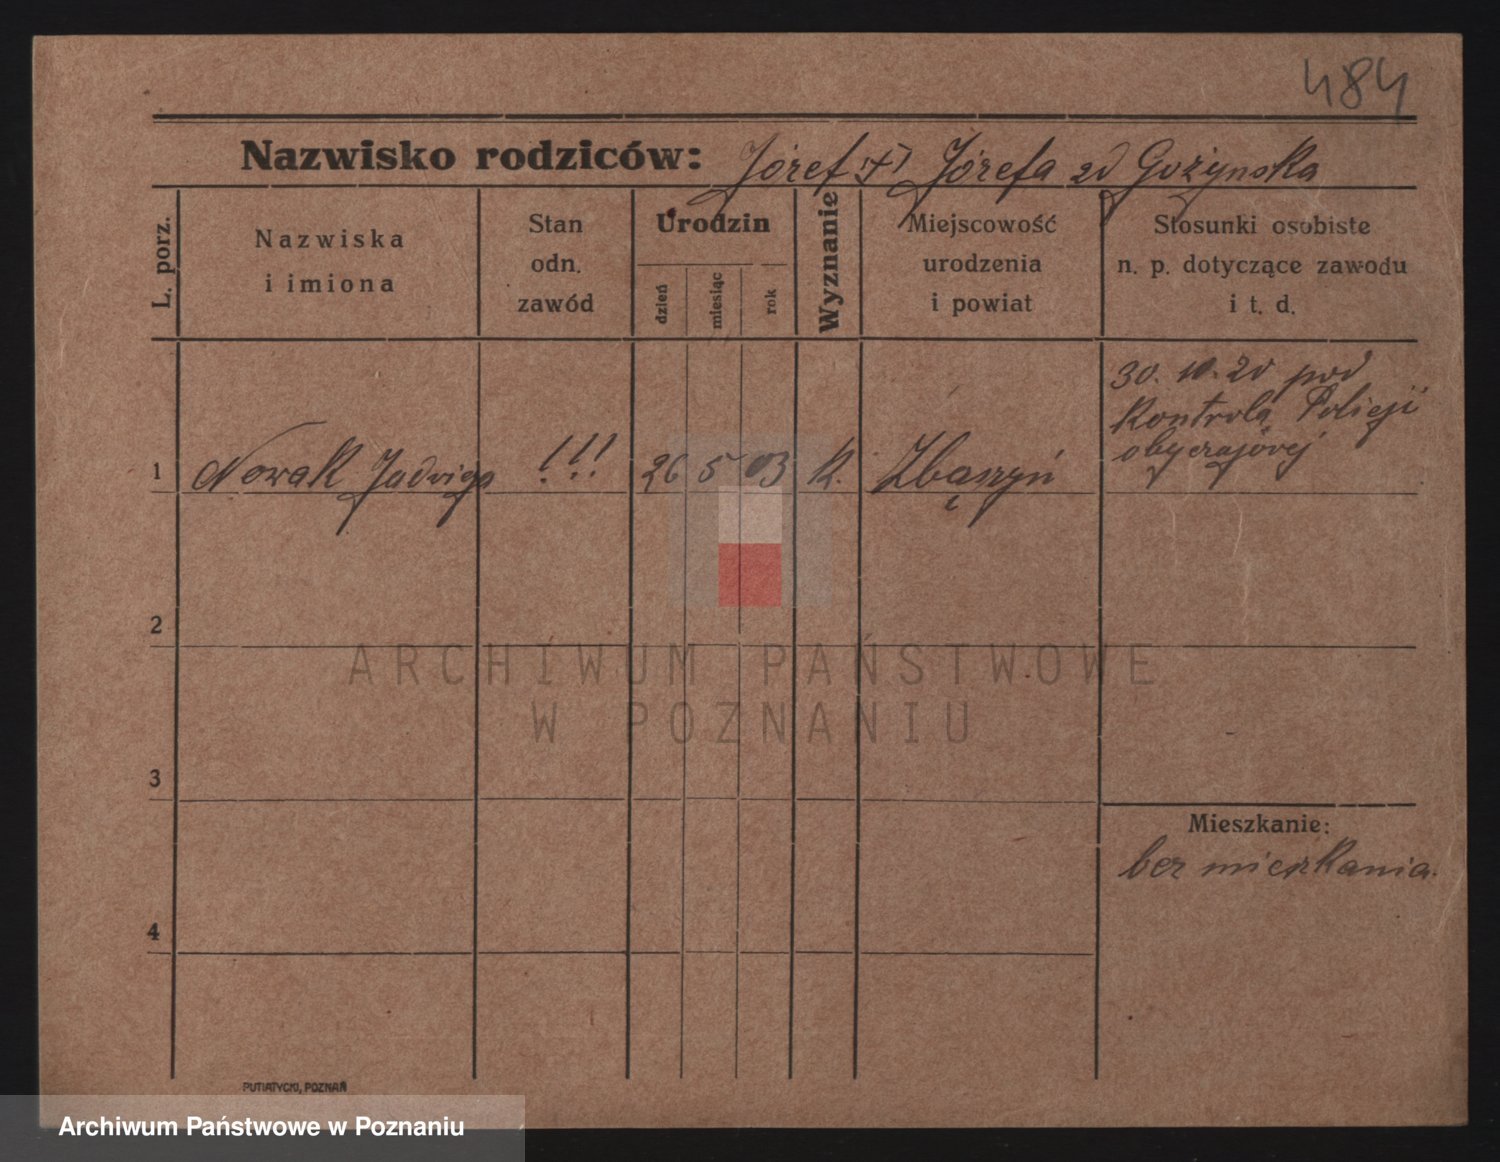 484
Nazwisko rodziców: Józef (+) Józefa zd Gożynska
L. porz.
Nazwiska
i imiona
Stan
odn.
zawód
Urodzin
dzień
miesiąc
rok
Wyznanie
Miejscowość
urodzenia
i powiat
Stosunki osobiste
n. p. dotyczące zawodu
i t. d.
30. 10. 20 pod
Kontrolą Policji
obyczajòvej
1 Nowak Jadwiga !!! 26 5 03 K. Zbąszyń
2
ARCHIWUM PAŃSTWOWE
W POZNANIU
3
Mieszkanie:
bez mieszkania.
4
PUTIATYCKI, POZNAŃ
Archiwum Państwowe w Poznaniu